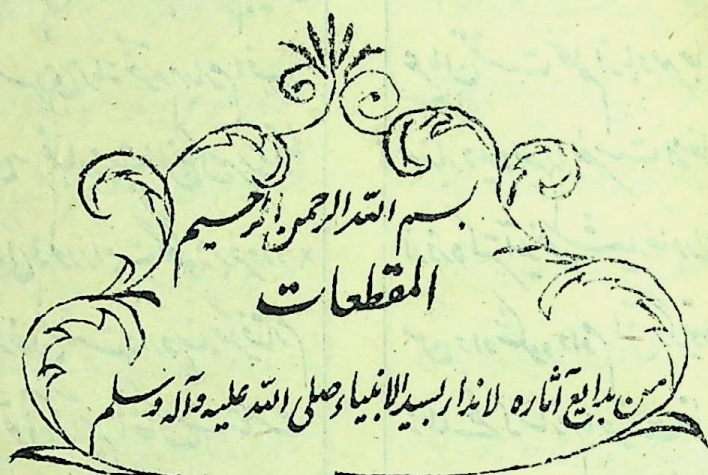 بسم الله الرحمن الرحيم
المقطعات
من بدایع آثاره لانذار لسید الانبیاء صلی الله علیه وآله وسلم